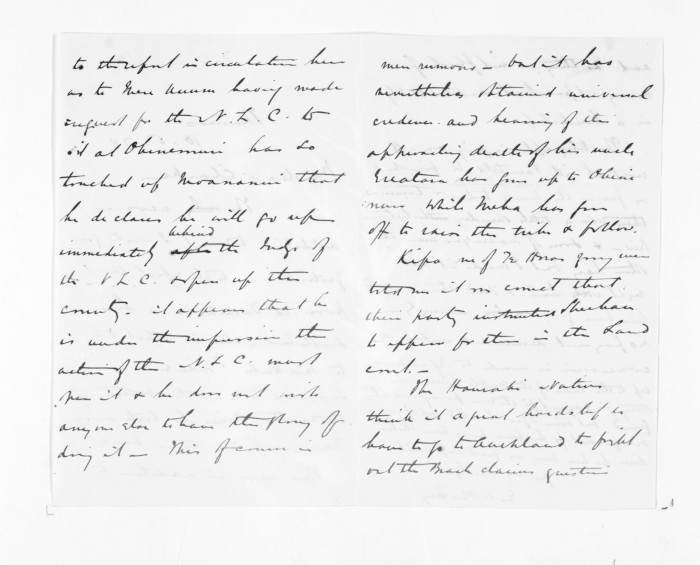 to the report in circulation here
as to Mere Kuru having made
request for the N. L. C. to
sit at Ohinemuri has so
touched up Moananui that
he declares he will go up
immediately behind the Judge of
the N L C. & open up the
country. it appears that he
is under the impression the
action of the N. L. C. must
open it & he does not wish
anyone else to have the glory of
doing it — This of course is
mere rumour — but it has
nevertheless obtained universal
credence and hearing of the
approaching death of his uncle
has gone up to Ohine
muri while Meha has gone
off to raise the tribe & follow.
Kipa
told me it is correct that
their party instructed Sheehan
to appear for them in the Land
court. —
The Hauraki Natives
think it a great hardship to
have to go to Auckland to fight
out the Beach claims question